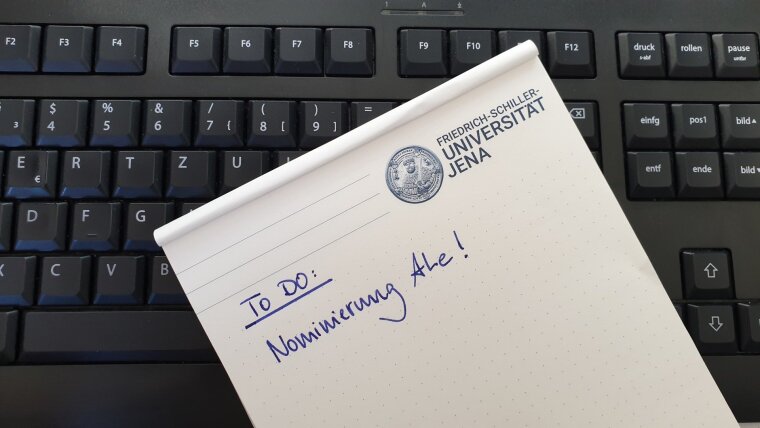 F2 F3 F4 F5 F6 F7 F8 F9 F10 F12 druck s-abf rollen pause untbr
3 $ 4 % 5 & 6 / 7 { ( 8 [ ) 9 ] = einfg pos1 bild
E € R T Z U entf ende bild
D F G
X C V B
FRIEDRICH-SCHILLER-
UNIVERSITÄT
JENA
TO DO:
Nominierung Ale!